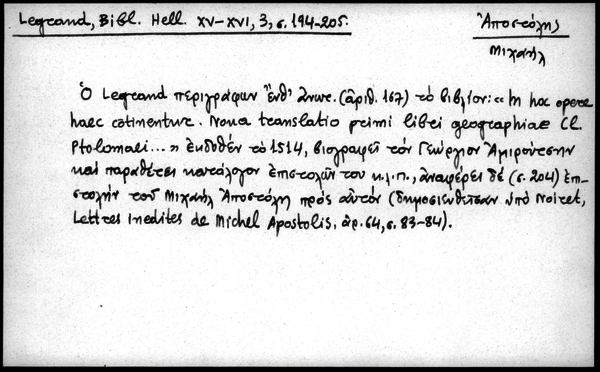 Legrand, Bibl. Hell. XV-XVI, 3, σ. 194-205.
Ἀποστόλης
Μιχαήλ
Ὁ Legrand περιγράφων ἔνθ' ἀνωτ. (ἀριθ. 167) τὸ βιβλίον: «In hoc opere
haec continentur. Nova translatio primi libri geographiae Cl.
Ptolomaei...» ἐκδοθέν τὸ 1514, βιογραφεῖ τὸν Γεώργιον Ἀμιρούτσην
καὶ παραθέτει κατάλογον ἐπιστολῶν του κ.λ.π., ἀναφέρει δὲ (σ. 204) ἐπι-
στολὴν τοῦ Μιχαὴλ Ἀποστόλη πρὸς αὐτὸν (δημοσιευθεῖσαν ὑπὸ Noiret,
Lettres inedites de Michel Apostolis, ἀρ. 64, σ. 83-84).